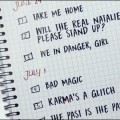 JUNE 24
TAKE ME HOME
WILL THE REAL NATALIE
PLEASE STAND UP?
WE IN DANGER, GIRL
JULY 1
BAD MAGIC
KARMA'S A GLITCH
THE PAST IS THE PAST